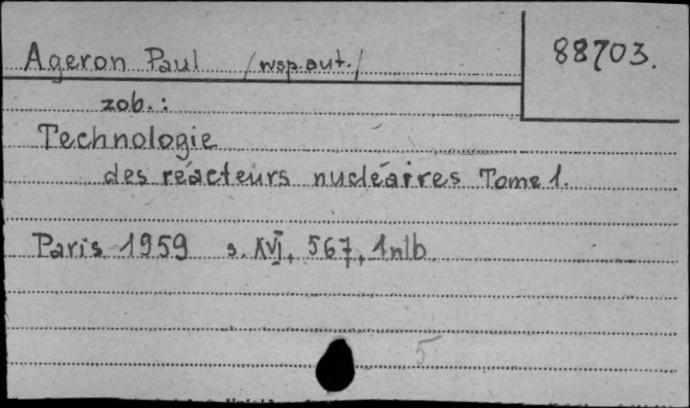 Ageron Paul /wsp.aut./ 88703.
zob.:
Technologie
des réacteurs nucléaires Tome 1.
Paris 1959 s. XVI, 567, 1nlb.
5